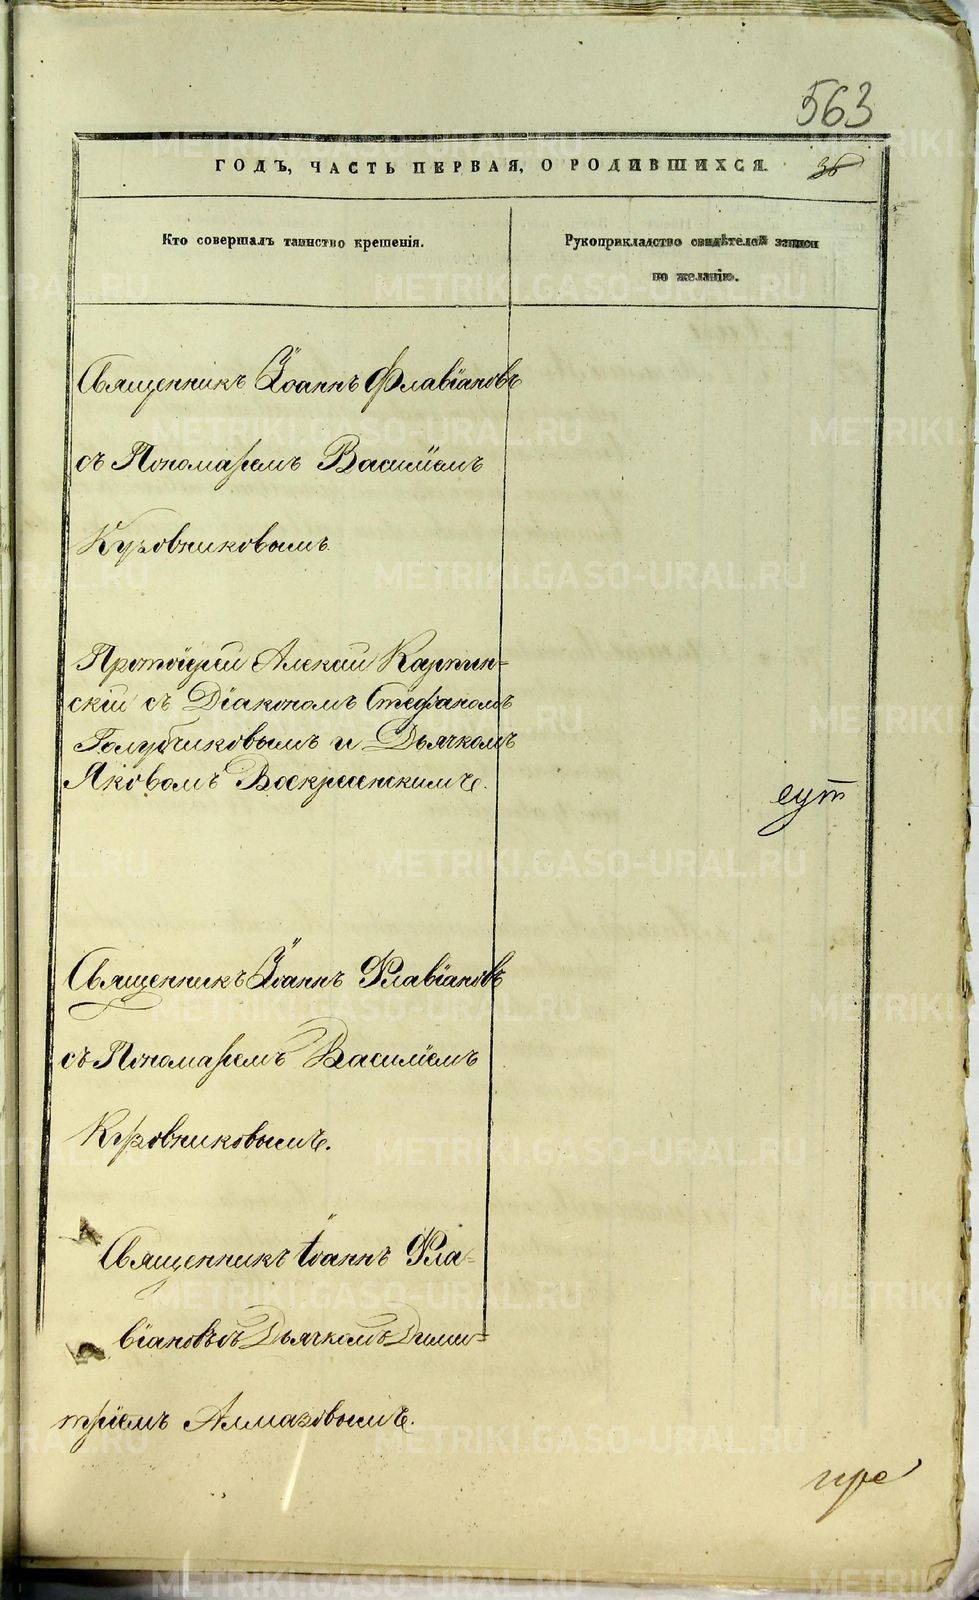 563
ГОДЪ, ЧАСТЬ ПЕРВАЯ, О РОДИВШИХСЯ. 36
Кто совершалъ таинство крещенія.
Рукоприкладство свидѣтелей записи
по желанію.
Священникъ Іоаннъ Флавіановъ
съ Пономаремъ Василіемъ
Кузовниковымъ
Протоіерей Алексій Карпин-
скій съ Діакономъ Стефаномъ
Голубчиковымъ и Дьячкомъ
Яковомъ Воскресенскимъ.
сут
Священникъ Іоаннъ Флавіановъ
съ Пономаремъ Василіемъ
Кузовниковымъ.
Священникъ Іоаннъ Фла-
віановъ съ Дьячкомъ Дими-
тріемъ Алмазовымъ.
пре
METRIKI.GASO-URAL.RU